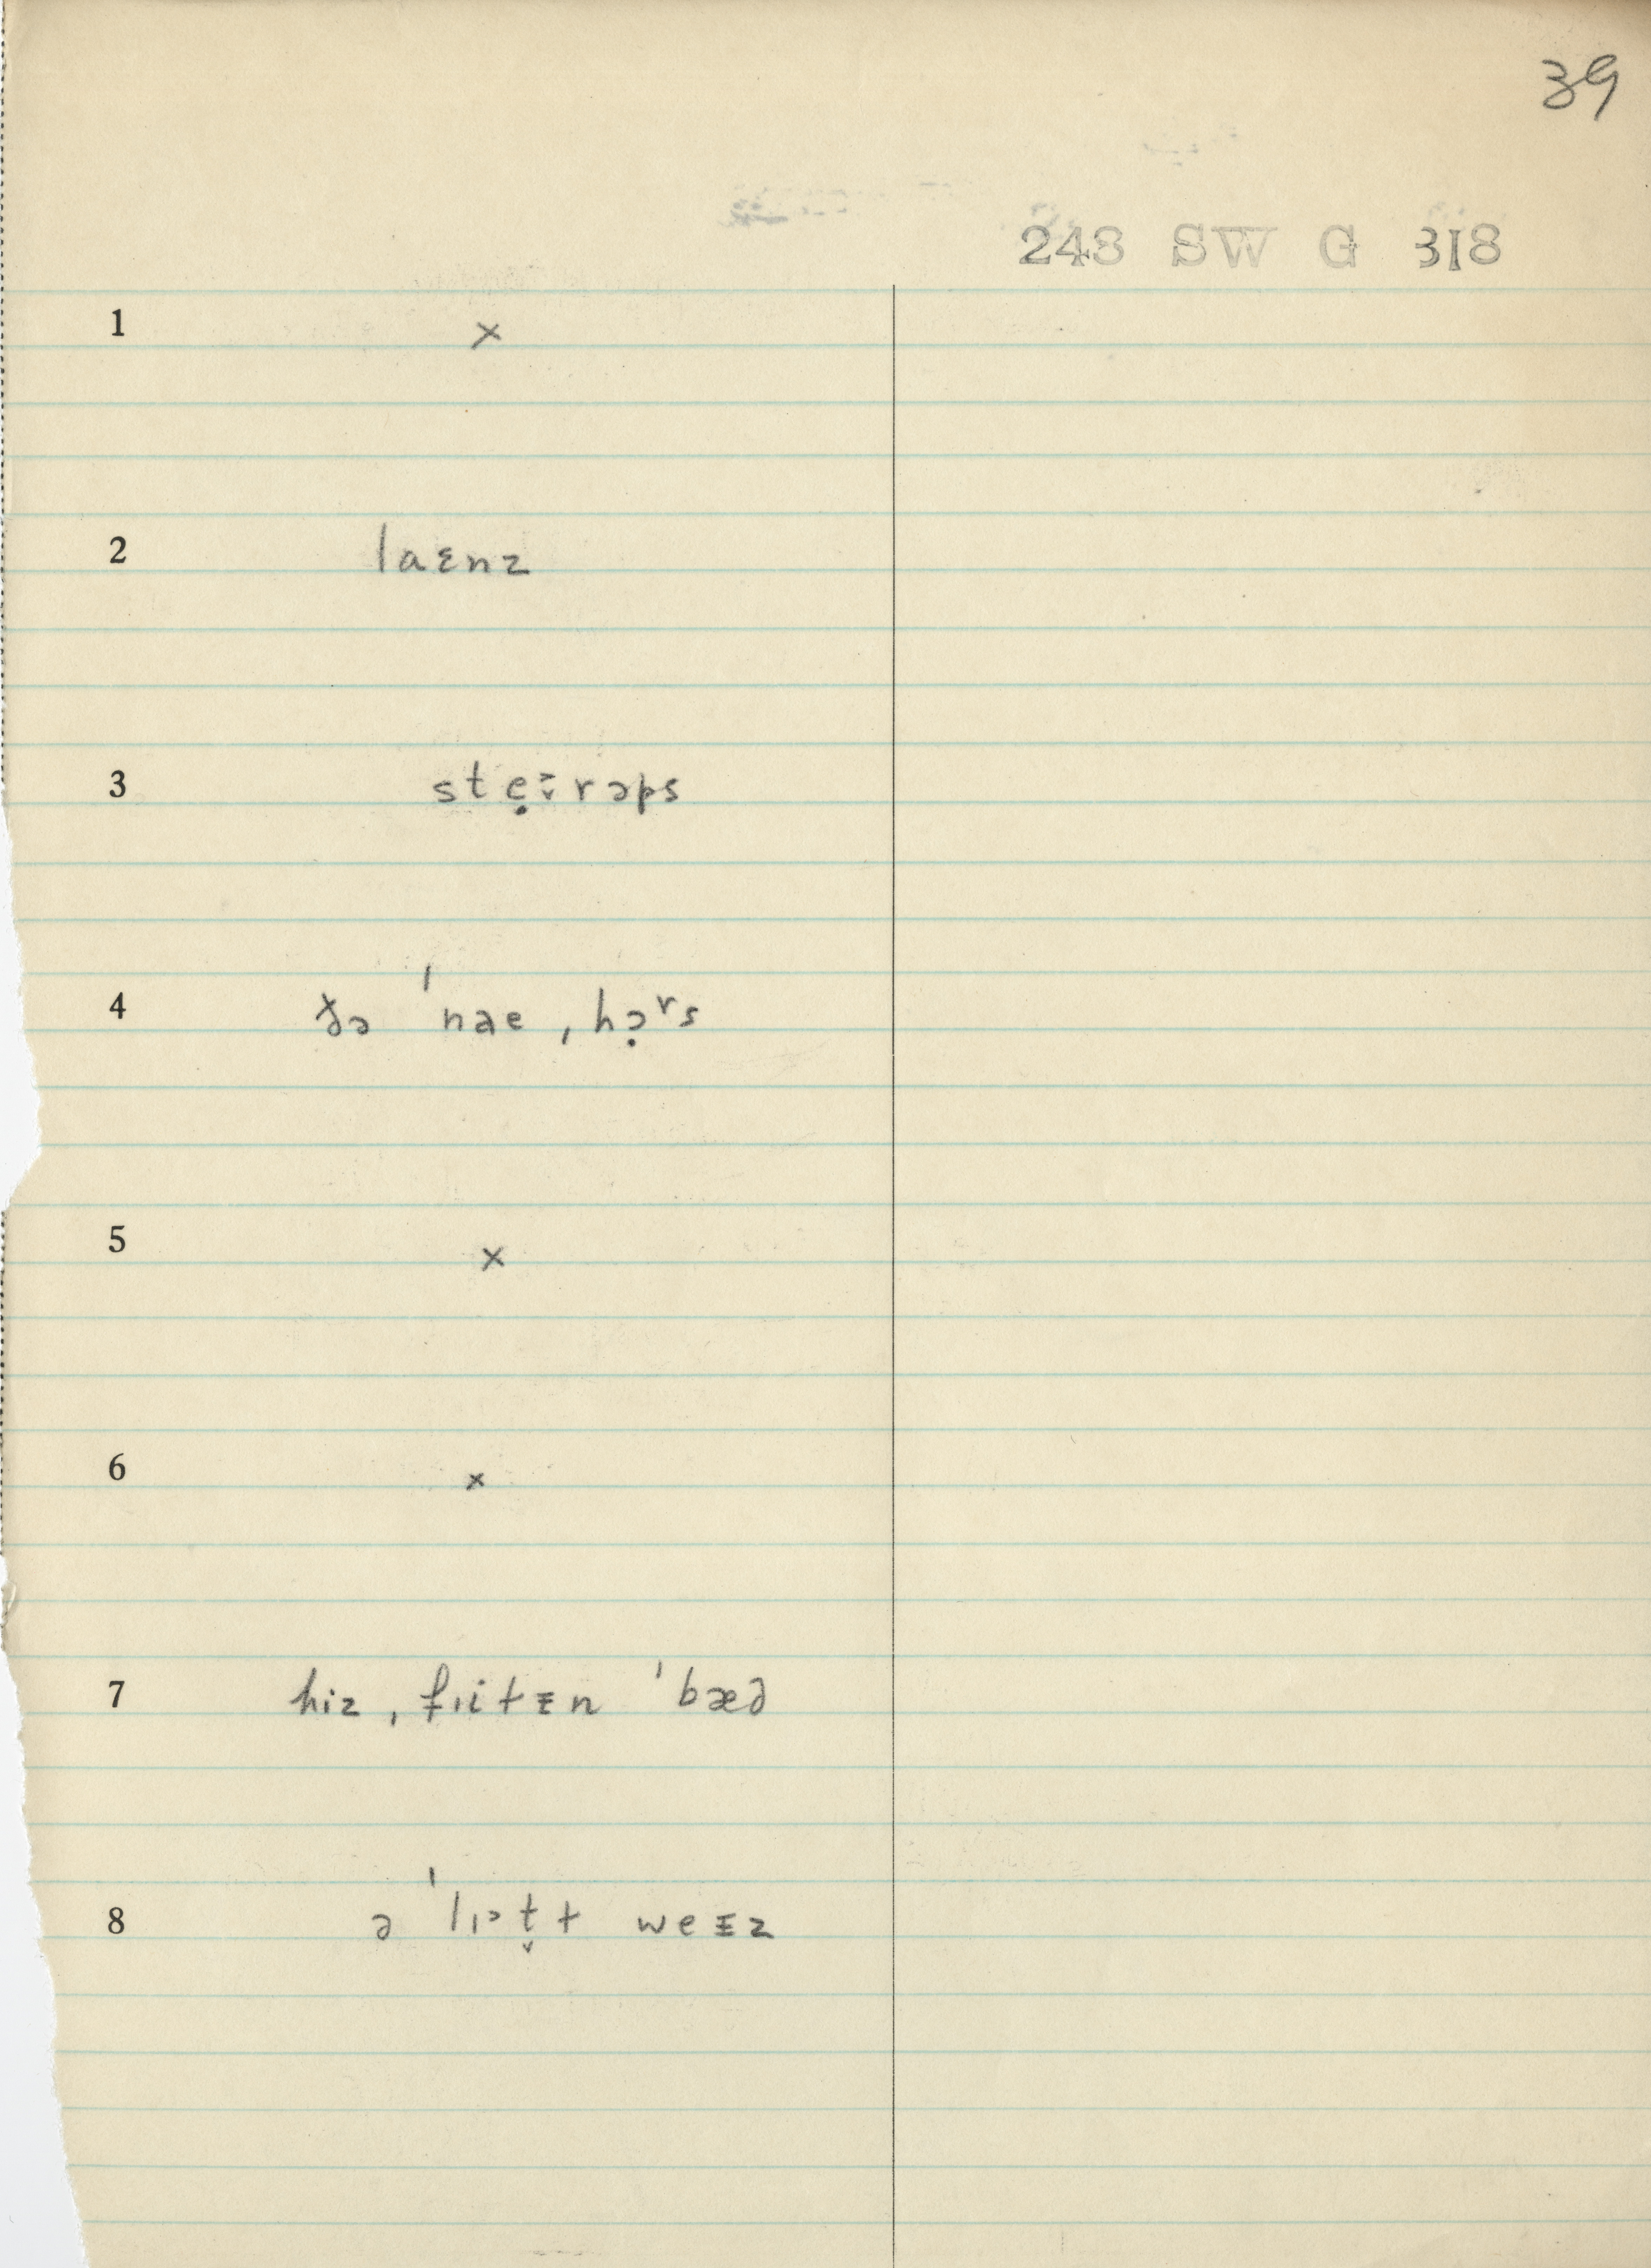 39
243 SW G 318
1 ×
2 laɛnz
3 stẹ˃̬rəps
4 ðə ˈnae ˌhə̣ʳs
5 ×
6 ×
7 hiz ˌfiɨtᵻn ˈbæd
8 ə ˈlɪ˃t̬ɫ weᵻz